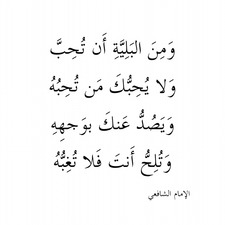 وَمِنَ البَلِيَّةِ أَن تُحِبَّ
وَلا يُحِبُّكَ مَن تُحِبُّهُ
وَيَصُدُّ عَنكَ بوَجهِهِ
وَتُلِحُّ أَنتَ فَلا تُغِبُّهُ
الإمام الشافعي